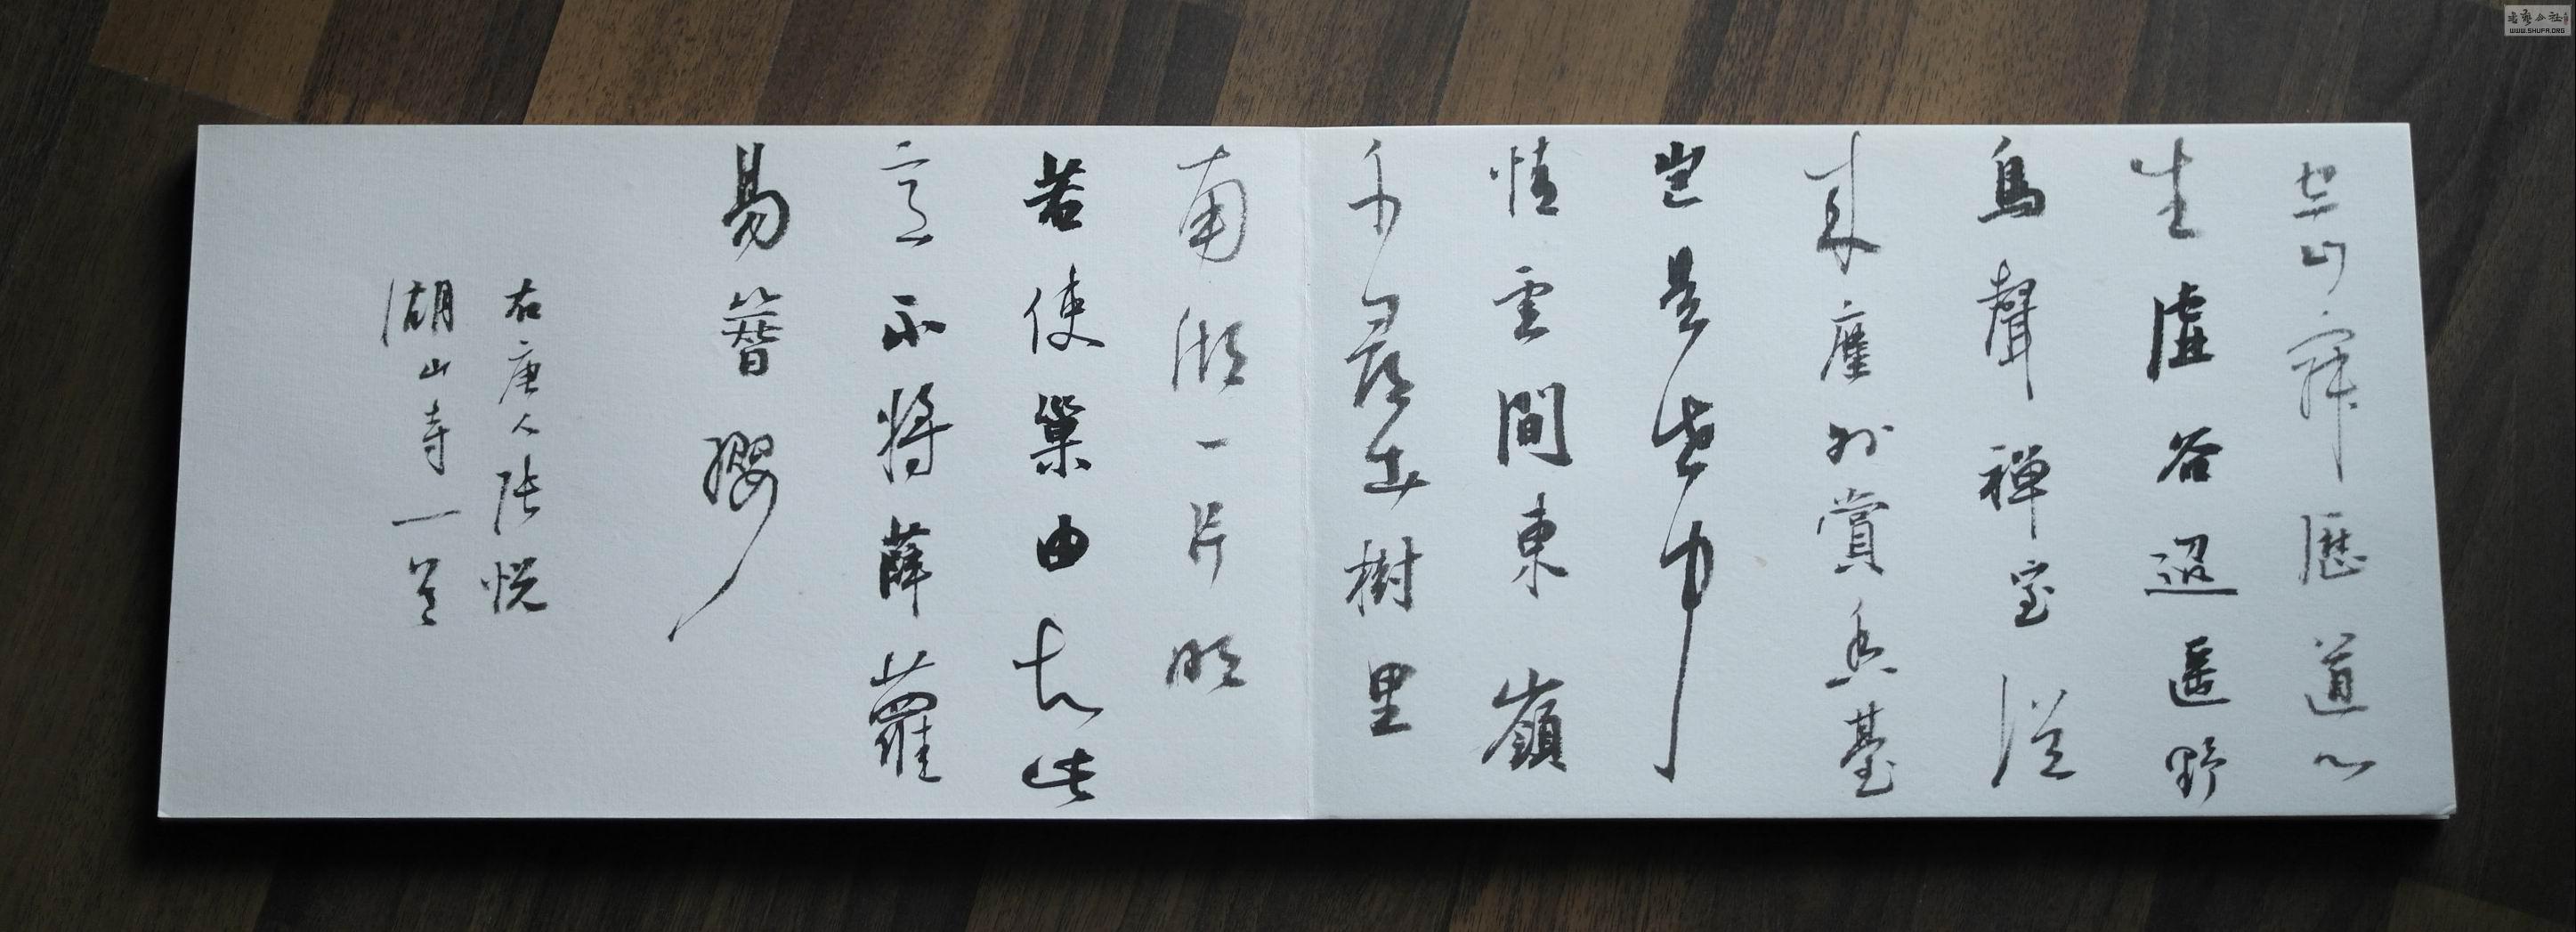 空山寂歷道心
生虛谷迢遥野
鳥聲禅室從
來塵外賞香臺
豈是世中
情雲間東嶺
千尋出樹里
南湖一片明
若使巢由知此
意不將薜蘿
易簪纓
右唐人張悦
湖山寺一首
書藝公社
WWW.SHUFA.ORG